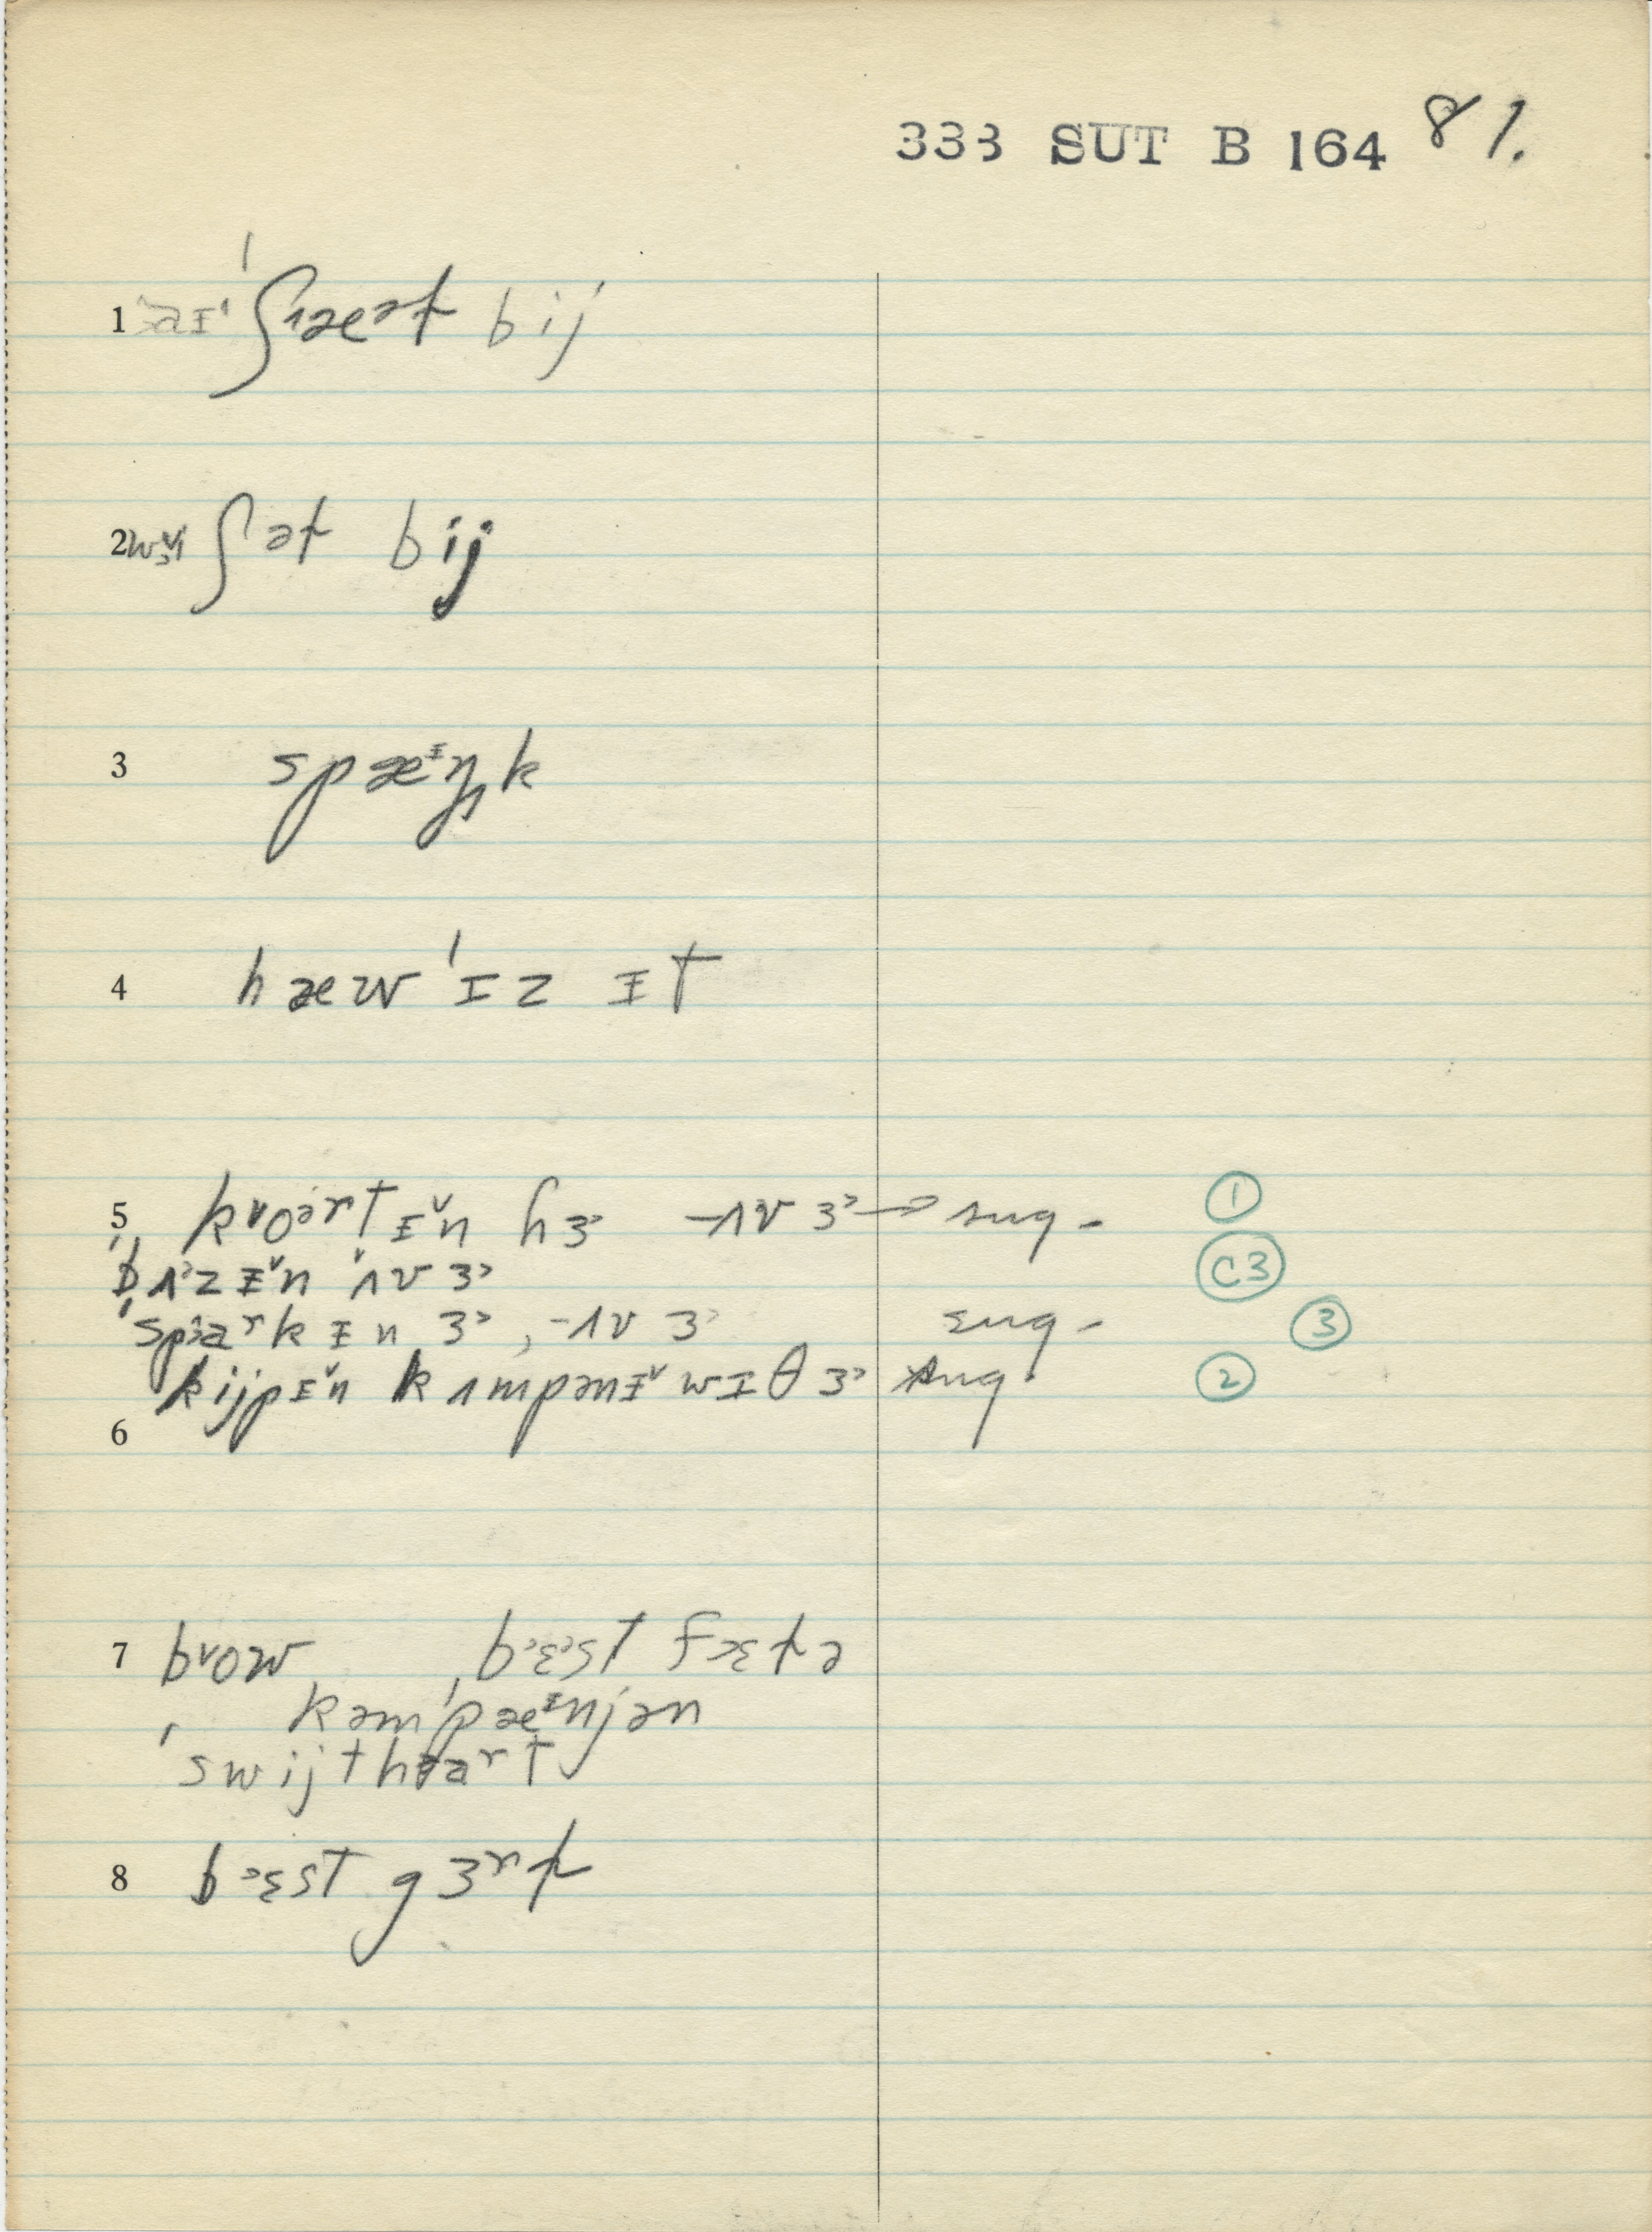 333 SUT B 164 81.
1 ˈʃæət bij
2 ʃət bij
3 spæᶦŋk
4 hæw ˈɪz ɪt
5 kᵛoərtɪ̌n hɜ˞ -ʌv ɜ˞ → sug. ①
bʌzɪ̌n ʌv ɜ˞ C3
spark ɪn ɜ˞, -ʌv ɜ˞ sug. ③
kijpɪ̌n kʌmpənɪ̌ wɪθ ɜ˞ sug. ②
6
7 bᵛow, bɛst fɛtə
kəmˈpæᶦnjən
swijthart
8 bɛst gɜʳt